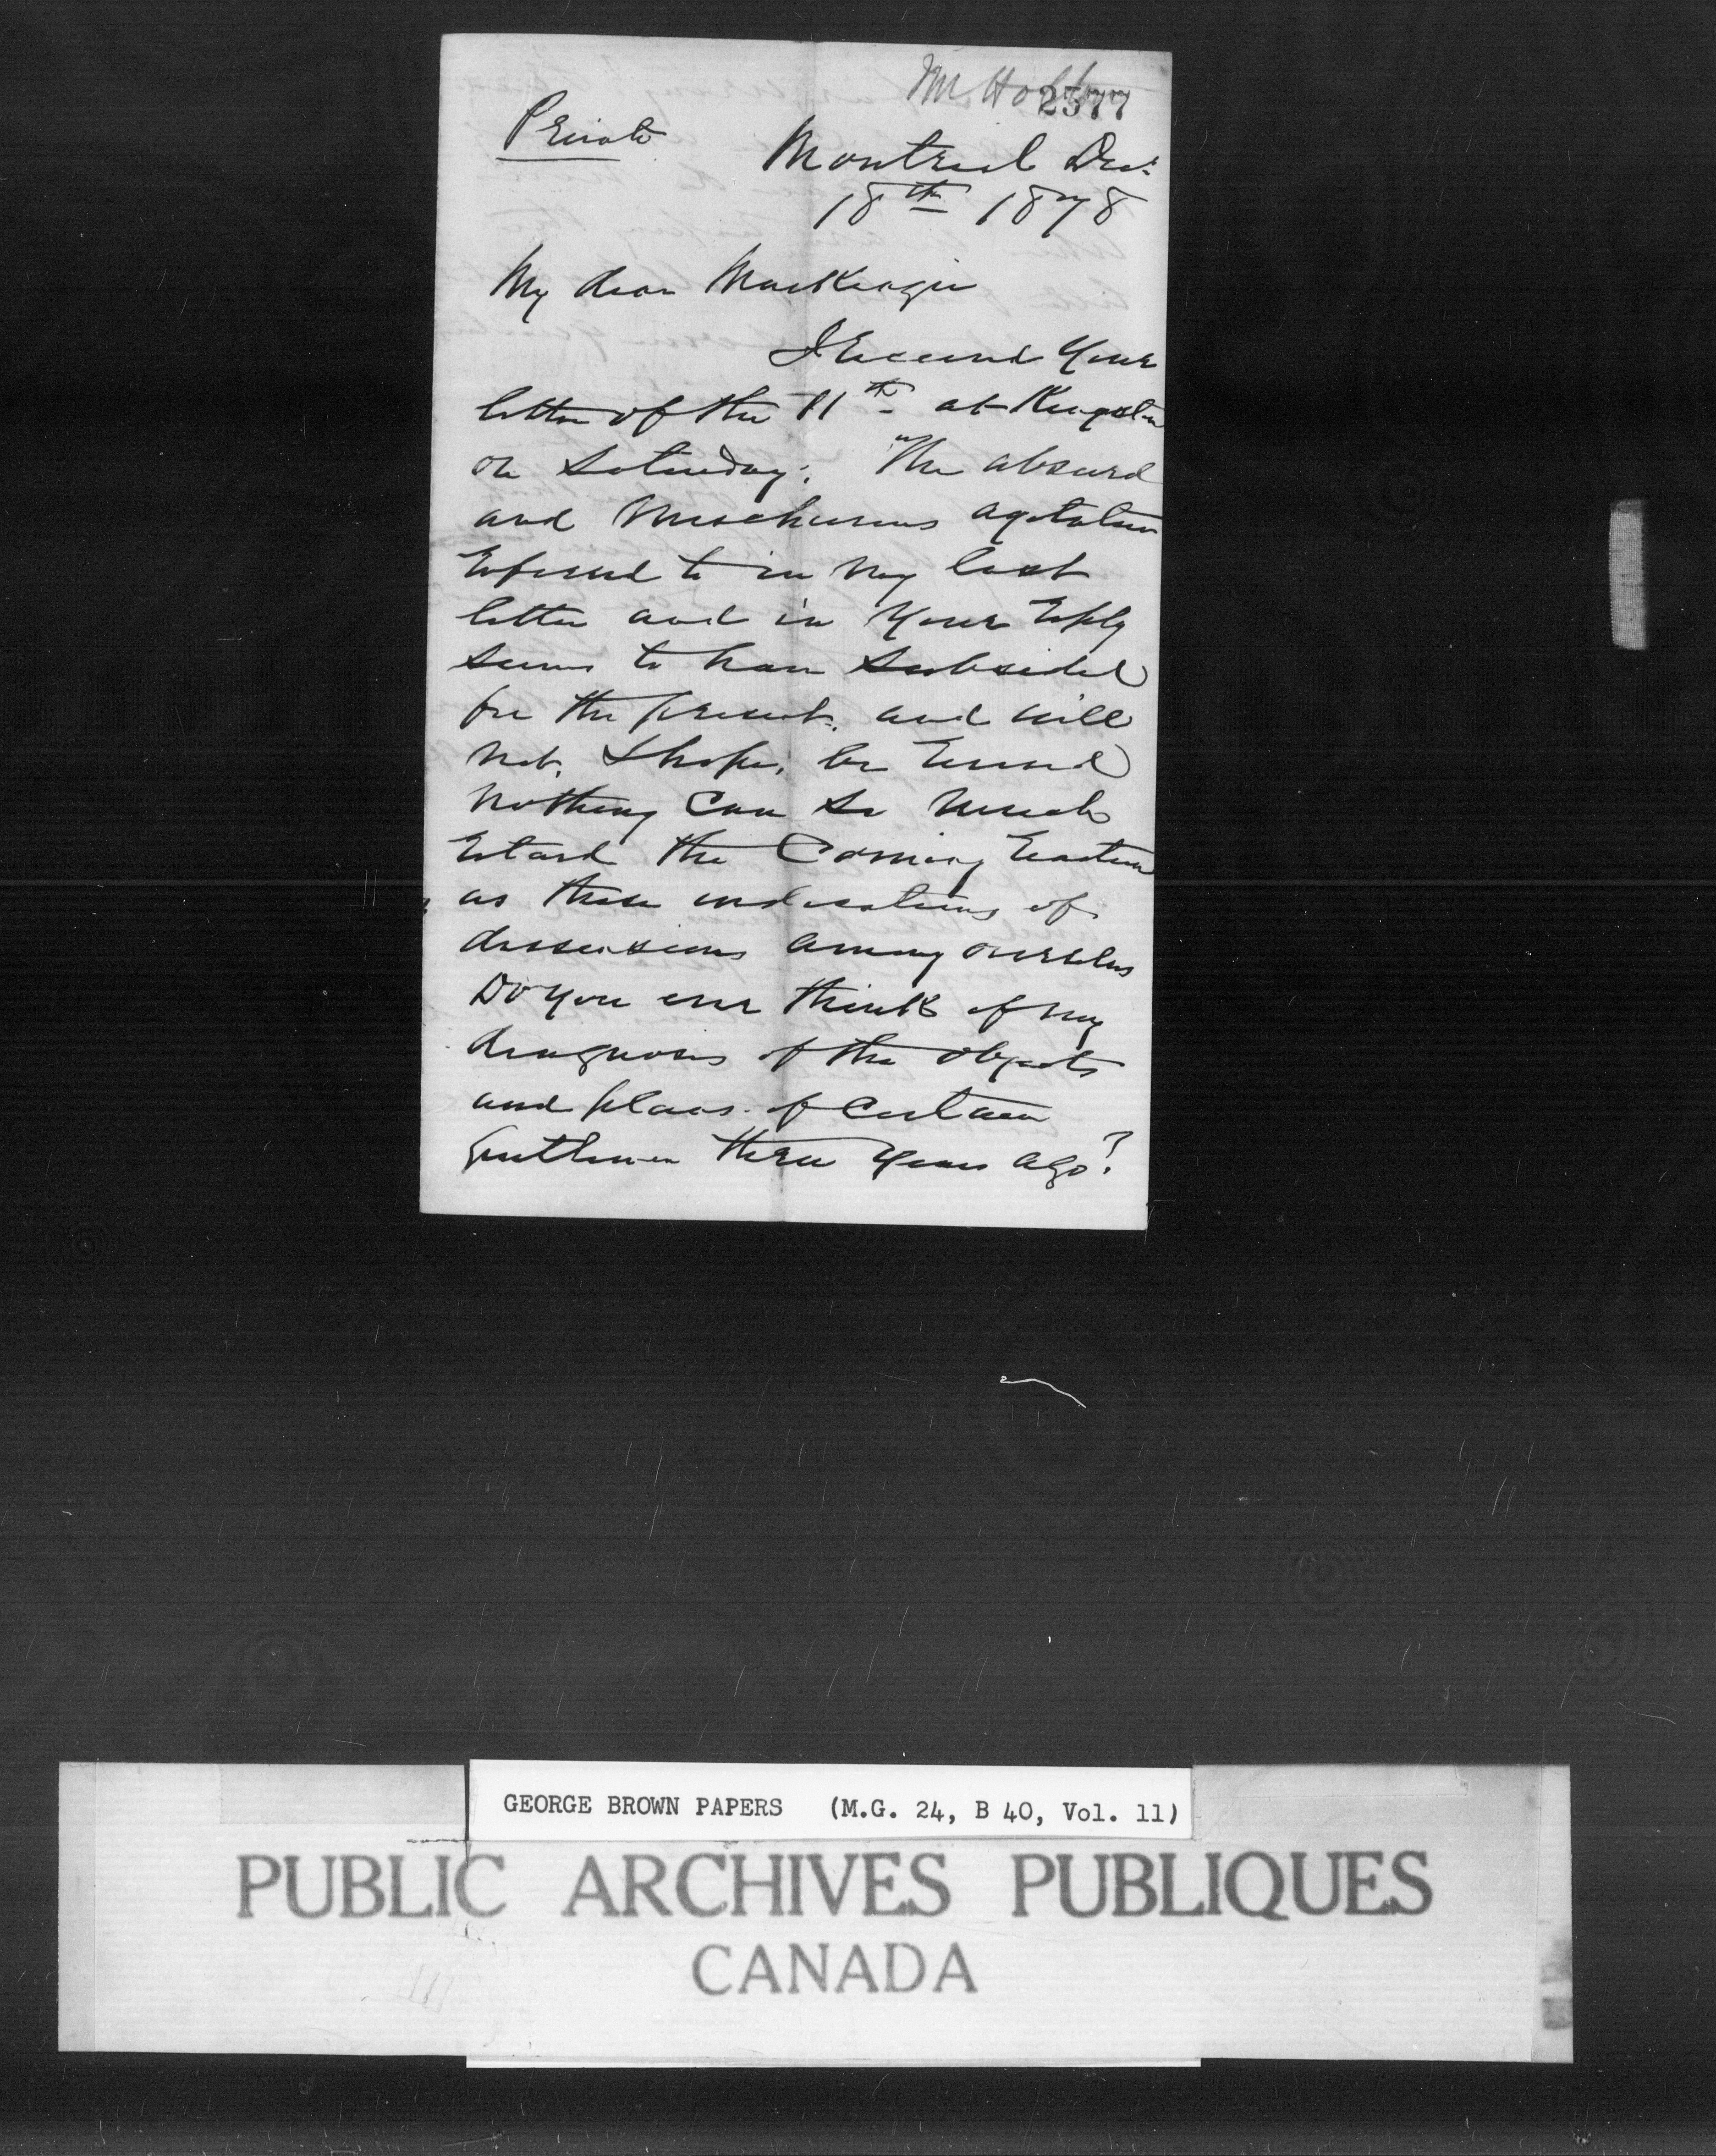 Mr Holton
2377
Private
Montreal Decr
18th 1878
My dear MacKenzie
I received your
letter of the 11th at Kingston
on Saturday. The absurd
and mischievous agitation
referred to in my last
letter and in your reply
seems to have subsided
for the present, and will
not, I hope, be renewed
Nothing can so much
retard the coming reaction
as these indications of
dissensions among ourselves
Do you ever think of my
diagnosis of the objects
and plans of certain
gentlemen three years ago?
GEORGE BROWN PAPERS (M.G. 24, B 40, Vol. 11)
PUBLIC ARCHIVES PUBLIQUES
CANADA